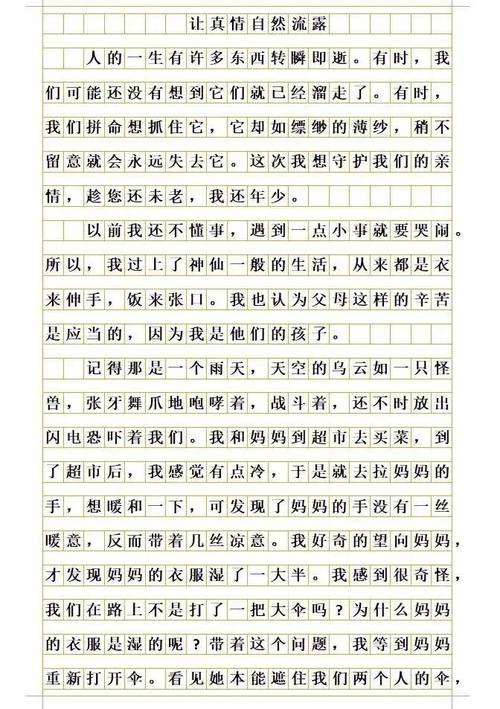 让真情自然流露
人的一生有许多东西转瞬即逝。有时，我
们可能还没有想到它们就已经溜走了。有时，
我们拼命想抓住它，它却如缥缈的薄纱，稍不
留意就会永远失去它。这次我想守护我们的亲
情，趁您还未老，我还年少。
以前我还不懂事，遇到一点小事就要哭闹。
所以，我过上了神仙一般的生活，从来都是衣
来伸手，饭来张口。我也认为父母这样的辛苦
是应当的，因为我是他们的孩子。
记得那是一个雨天，天空的乌云如一只怪
兽，张牙舞爪地咆哮着，战斗着，还不时放出
闪电恐吓着我们。我和妈妈到超市去买菜，到
了超市后，我感觉有点冷，于是就去拉妈妈的
手，想暖和一下，可发现了妈妈的手没有一丝
暖意，反而带着几丝凉意。我好奇的望向妈妈，
才发现妈妈的衣服湿了一大半。我感到很奇怪，
我们在路上不是打了一把大伞吗？为什么妈妈
的衣服是湿的呢？带着这个问题，我等到妈妈
重新打开伞。看见她本能遮住我们两个人的伞，